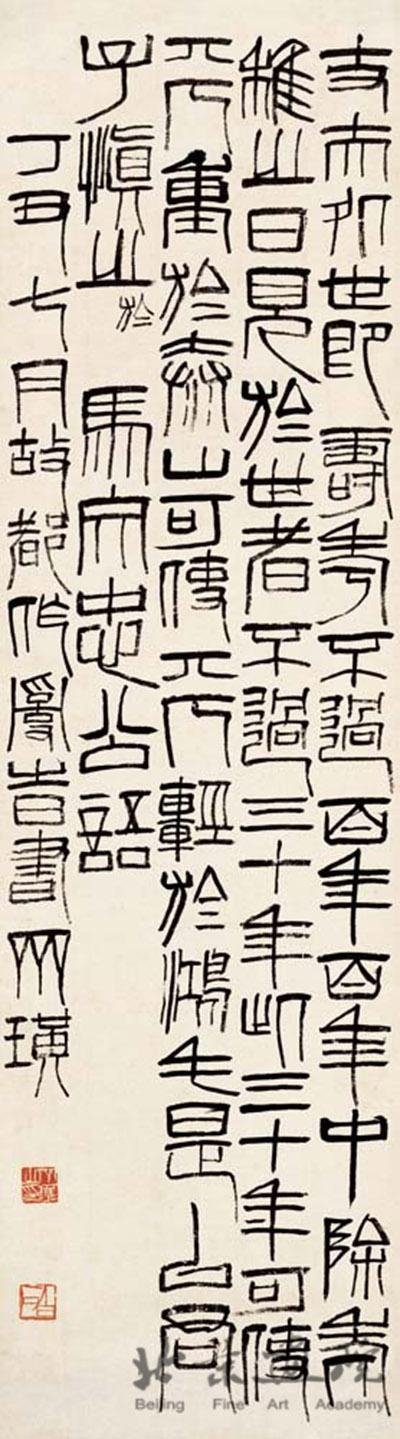 丈夫処世即壽考不過百年百年中除老
稚之日見於世者不過三十年此三十年可使
丌人重於泰山可使丌人輕於鴻毛是以君
子慎之於 馬文忠公語
丁丑七月故都作𤔔旹書齊璜
北京画院
Beijing Fine Art Academy